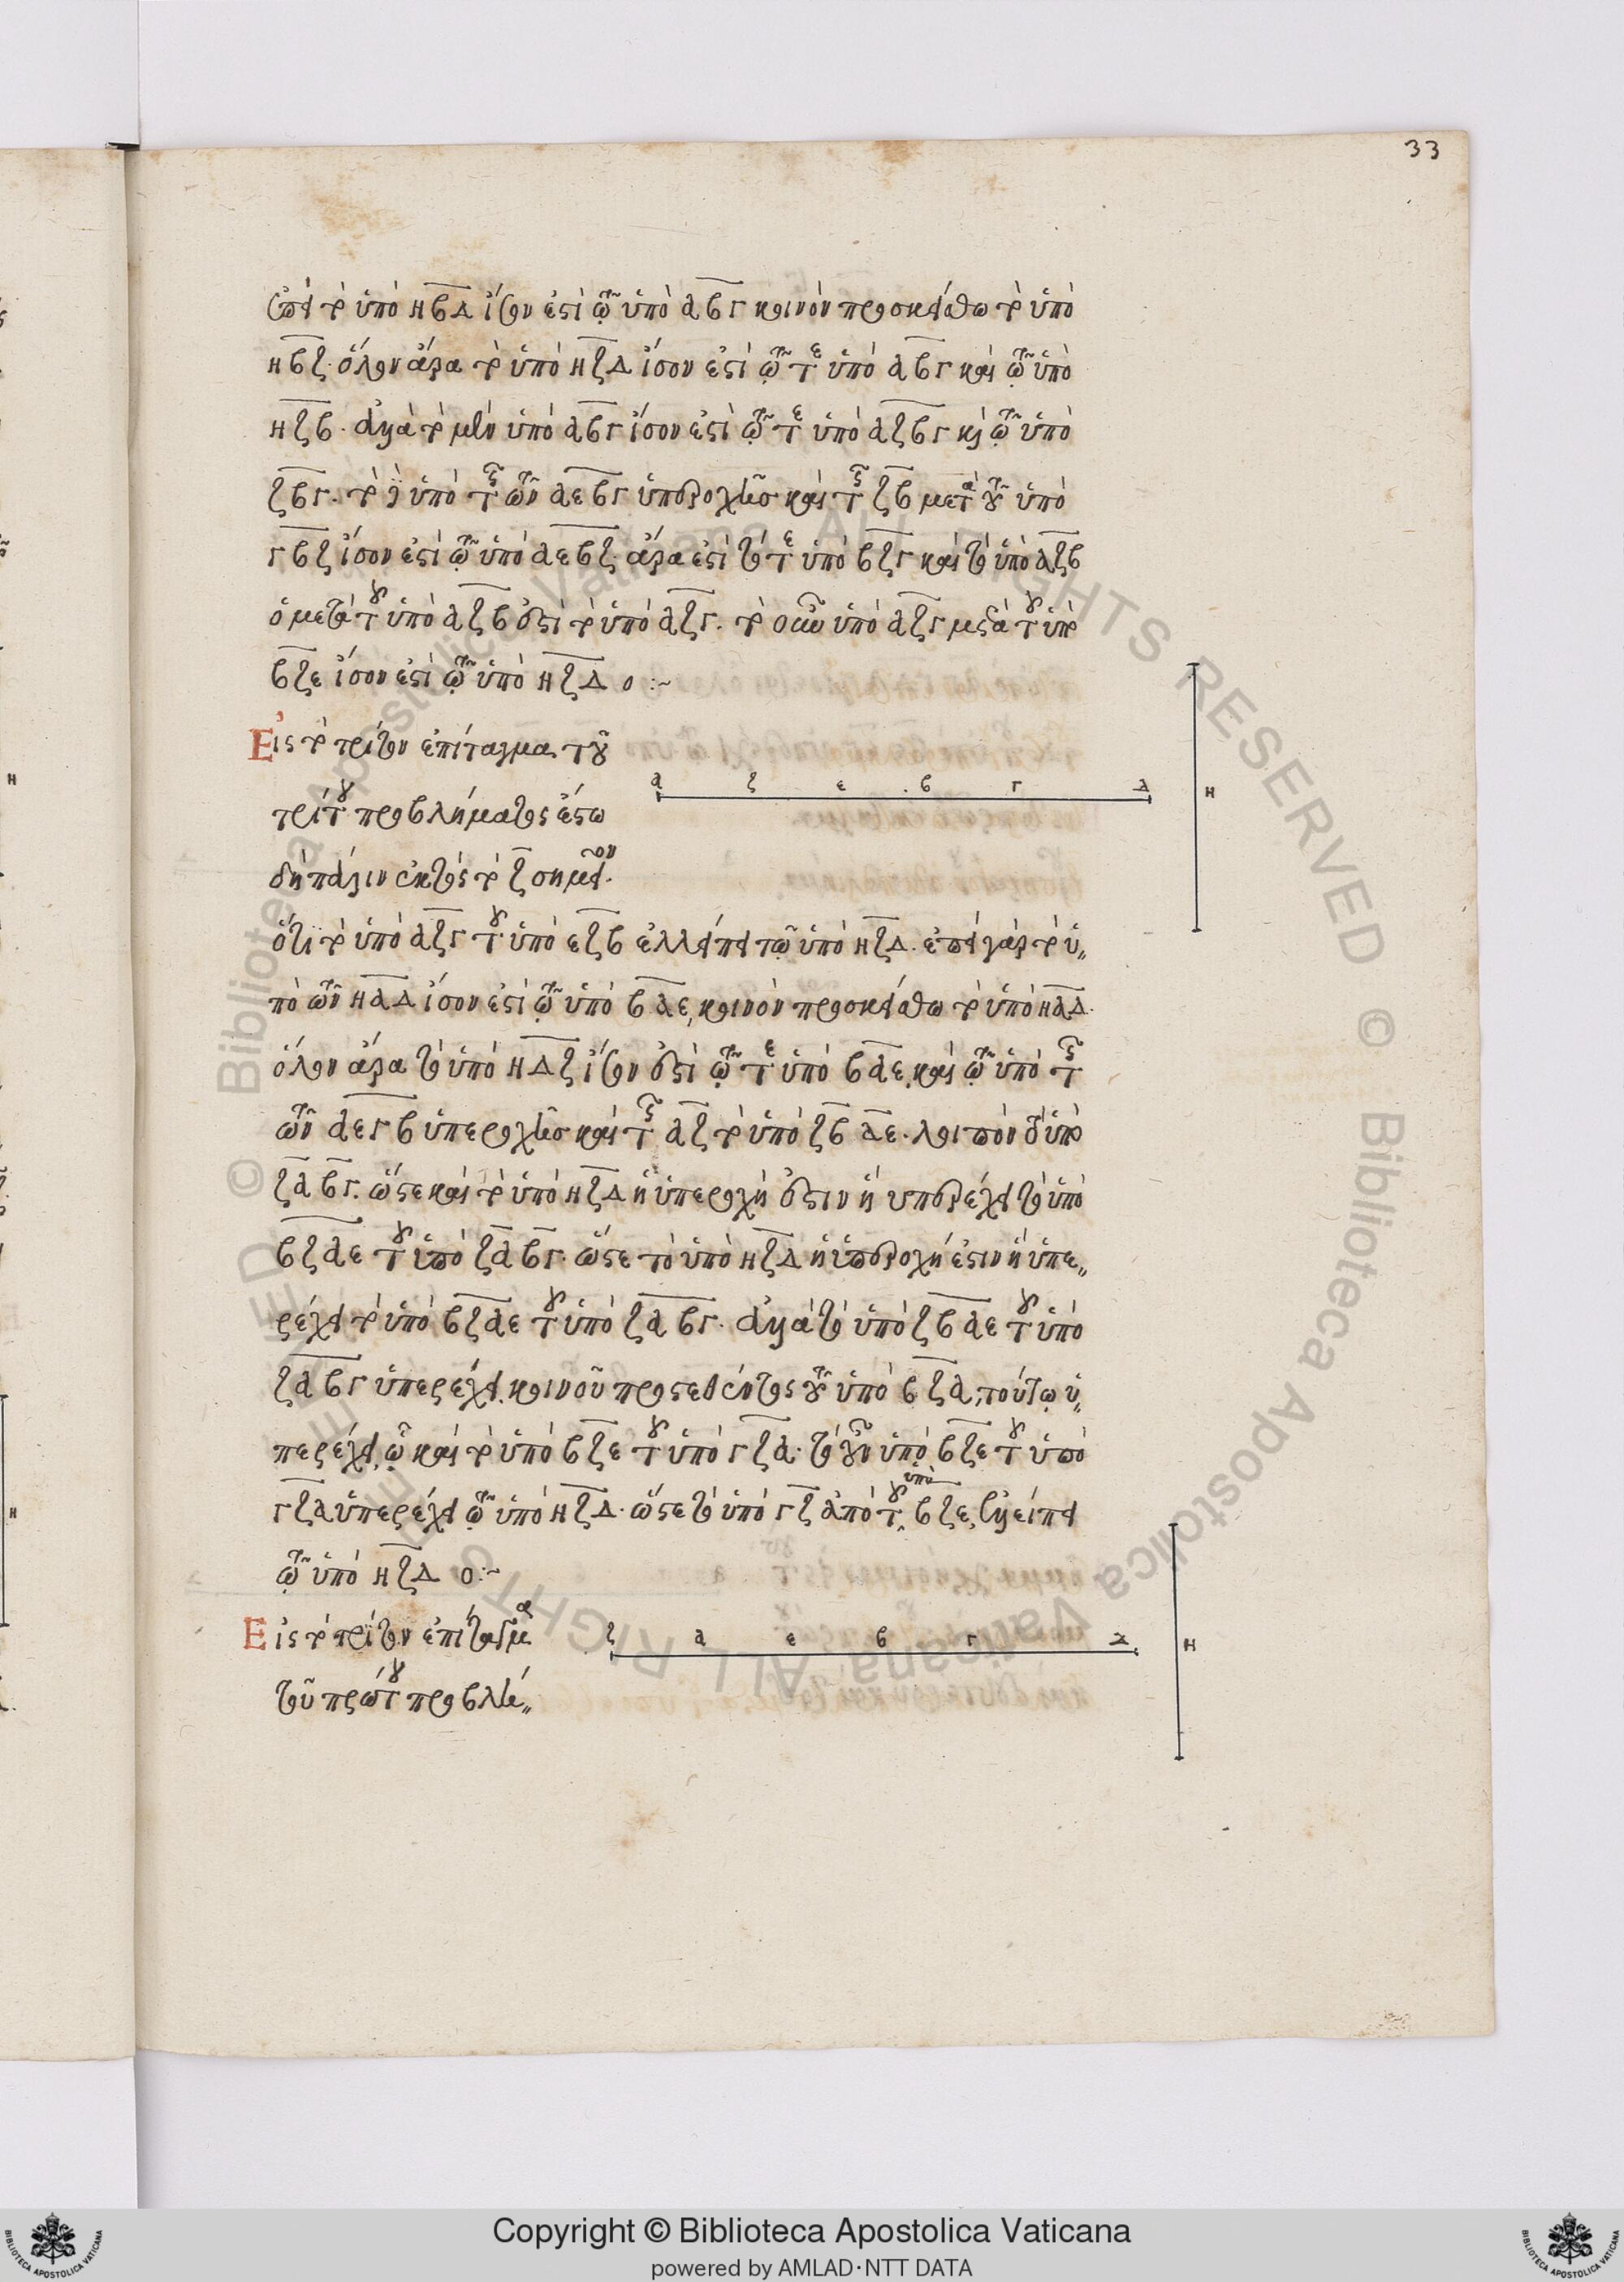 33
ἐπεὶ τὸ ὑπὸ ΗΒΔ ἴσον ἐστὶ τῷ ὑπὸ ΑΒΓ κοινὸν προσκείσθω τὸ ὑπὸ
ΗΒΖ· ὅλον ἄρα τὸ ὑπὸ ΗΖΔ ἴσον ἐστὶ τῷ τε ὑπὸ ΑΒΓ καὶ τῷ ὑπὸ
ΗΖΒ. ἀλλὰ τὸ μὲν ὑπὸ ΑΒΓ ἴσον ἐστὶ τῷ τε ὑπὸ ΑΖΒΓ καὶ τῷ ὑπὸ
ΖΒΓ. τὸ δὲ ὑπὸ τῆς τῶν ΑΕΒΓ ὑπεροχῆς καὶ τῆς ΖΒ μετὰ τοῦ ὑπὸ
ΓΒΖ ἴσον ἐστὶ τῷ ὑπὸ ΑΕΒΖ. ἄρα ἐστὶ τό τε ὑπὸ ΒΖΓ καὶ τὸ ὑπὸ ΑΖΒ
ὁ μετὰ τοῦ ὑπὸ ΑΖΒ ἐστὶ τὸ ὑπὸ ΑΖΓ. τὸ ὑπὸ ΑΖΓ μετὰ τοῦ ὑπὸ
ΒΖΕ ἴσον ἐστὶ τῷ ὑπὸ ΗΖΔ ο :~
Εἰς τὸ τρίτον ἐπίταγμα τοῦ
τρίτου προβλήματος ἔστω
δὴ πάλιν ἐκτὸς τὸ Ζ σημεῖον.
ὅτι τὸ ὑπὸ ΑΖΓ τοῦ ὑπὸ ΕΖΒ ἐλλείπει τῷ ὑπὸ ΗΖΔ. ἐπεὶ γὰρ τὸ ὑ„
πὸ τῶν ΗΑΔ ἴσον ἐστὶ τῷ ὑπὸ ΒΑΕ, κοινὸν προσκείσθω τὸ ὑπὸ ΗΑΔ.
ὅλον ἄρα τὸ ὑπὸ ΗΔΖ ἴσον ἐστὶ τῷ τε ὑπὸ ΒΑΕ, καὶ τῷ ὑπὸ τῆς
τῶν ΑΕΓΒ ὑπεροχῆς καὶ τῆς ΑΖ τὸ ὑπὸ ΖΒ ΑΕ. λοιπὸν τὸ ὑπὸ
ΖΑ ΒΓ. ὥστε καὶ τὸ ὑπὸ ΗΖΔ ἡ ὑπεροχή ἐστιν ᾗ ὑπερέχει τὸ ὑπὸ
ΒΖΑΕ τοῦ ὑπὸ ΖΑ ΒΓ. ὥστε τὸ ὑπὸ ΗΖΔ ἡ ὑπεροχή ἐστιν ᾗ ὑπε„
ρέχει τὸ ὑπὸ ΒΖΑΕ τοῦ ὑπὸ ΖΑ ΒΓ. ἀλλὰ τὸ ὑπὸ ΖΒ ΑΕ τοῦ ὑπὸ
ΖΑ ΒΓ ὑπερέχει, κοινοῦ προστεθέντος τοῦ ὑπὸ ΒΖΑ, τούτῳ ὑ„
περέχει, ᾧ καὶ τὸ ὑπὸ ΒΖΕ τοῦ ὑπὸ ΓΖΑ. τὸ οὖν ὑπὸ ΒΖΕ τοῦ ὑπὸ
ΓΖΑ ὑπερέχει τῷ ὑπὸ ΗΖΔ. ὥστε τὸ ὑπὸ ΓΖ ἀπὸ τοῦ ὑπὸ ΒΖΕ, ἐλλείπει
τῷ ὑπὸ ΗΖΔ ο :~
Εἰς τὸ τρίτον ἐπίταγμα
τοῦ πρώτου προβλή„
Α Ζ Ε Β Γ Δ
Η
Ζ Α Ε Β Γ Δ
Η
Copyright © Biblioteca Apostolica Vaticana
powered by AMLAD·NTT DATA